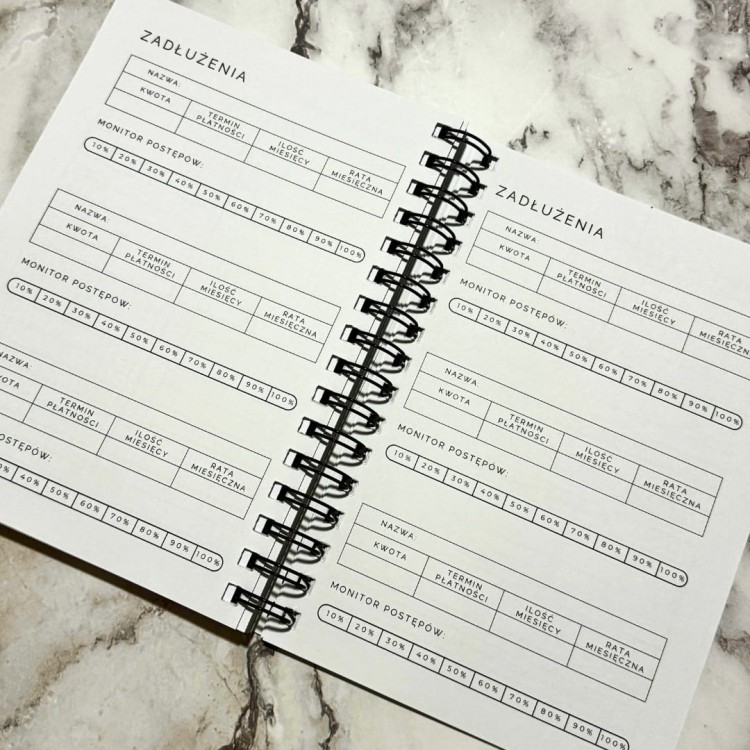 ZADŁUŻENIA
NAZWA:
KWOTA TERMIN PŁATNOŚCI ILOŚĆ MIESIĘCY RATA MIESIĘCZNA
MONITOR POSTĘPÓW:
10% 20% 30% 40% 50% 60% 70% 80% 90% 100%
NAZWA:
KWOTA TERMIN PŁATNOŚCI ILOŚĆ MIESIĘCY RATA MIESIĘCZNA
MONITOR POSTĘPÓW:
10% 20% 30% 40% 50% 60% 70% 80% 90% 100%
NAZWA:
TERMIN PŁATNOŚCI ILOŚĆ MIESIĘCY RATA MIESIĘCZNA
40% 50% 60% 70% 80% 90% 100%
ZADŁUŻENIA
NAZWA:
KWOTA TERMIN PŁATNOŚCI ILOŚĆ MIESIĘCY RATA
MONITOR POSTĘPÓW:
10% 20% 30% 40% 50% 60% 70% 80% 90% 100%
NAZWA:
KWOTA TERMIN PŁATNOŚCI ILOŚĆ MIESIĘCY RATA MIESIĘCZNA
MONITOR POSTĘPÓW:
10% 20% 30% 40% 50% 60% 70% 80% 90% 100%
NAZWA:
KWOTA TERMIN PŁATNOŚCI ILOŚĆ MIESIĘCY RATA MIESIĘCZNA
MONITOR POSTĘPÓW:
10% 20% 30% 40% 50% 60% 70% 80% 90% 100%